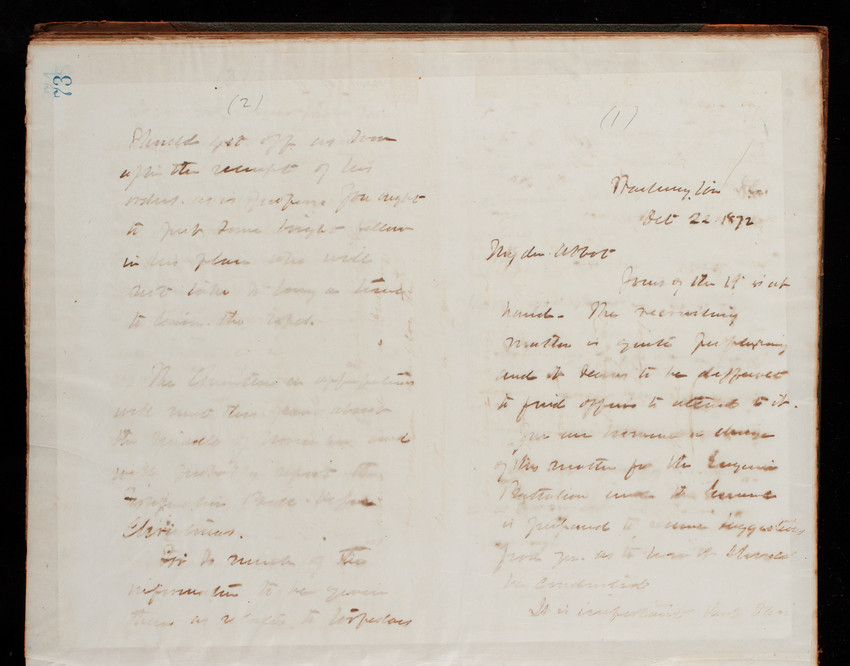 (1)
Washington
Oct 22 1872
My dear Abbot
Yours of the 18 is at
hand. The recruiting
matter is quite perplexing
and it seems to be difficult
to find officers to attend to it.
You are however in charge
of this matter for the Engineer
Battalion and the General
is prepared to receive suggestions
from you as to how it should
be conducted
It is important that
73
(2)
Should get off as soon
after the receipt of his
orders as is proper. You ought
to put some bright fellow
in his place who will
not take so long a time
to learn the ropes.
The Committee on appropriations
will meet this year about
the middle of November and
will probably report the
Fortification Bill before
Christmas.
So much of the
information to be given
them as relates to torpedoes